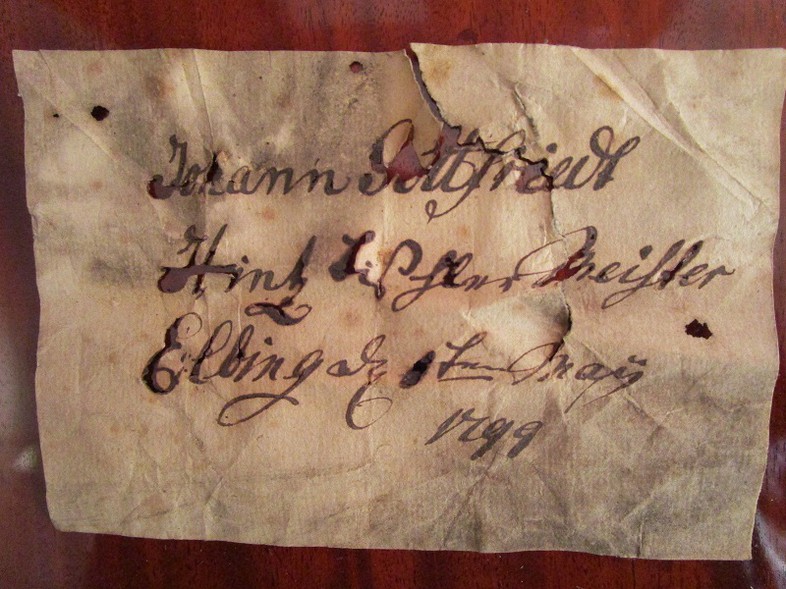 Johann Gottfriedt
Hintz Tischler Meister
Elbing d 1ten May
1799